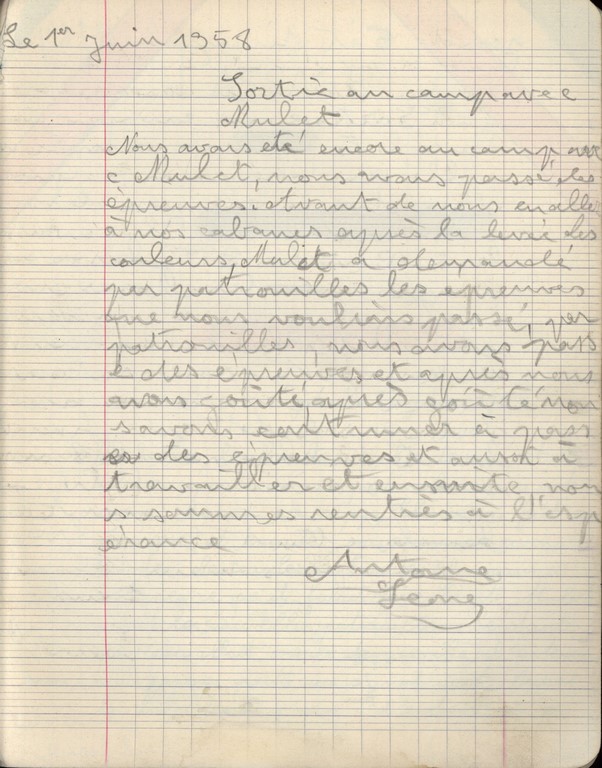 Le 1er Juin 1958
Sortie au camp avec
Mulet
Nous avons été encore au camp ave
c Mulet, nous avons passé, les
épreuves. Avant de nous en aller
à nos cabanes après la levée des
couleurs, Mulet a demandé
par patrouilles les épreuves
que nous voulions passé, par
patrouilles, nous avons pass
é des épreuves et après nous
avons goûté, après goûté nou
s avons continuer à pass
ea des épreuves et aussit à
travailler et ensuite nou
s sommes rentrès à l'esp
érance
Antoine